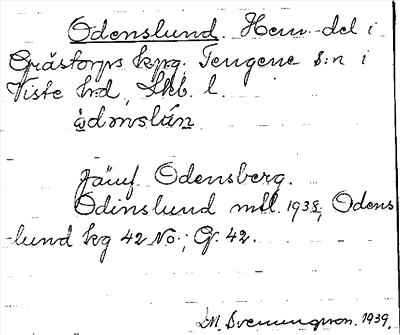 Odenslund. Hem.-del i
Grästorps kprg. Tengene s:n i
Viste hrd, Skb. l.
ådnslún
Jämf. Odensberg.
Odinslund mtl. 1938; Odens
-lund kg 42 No.; G. 42.
M. Svenungson. 1939.